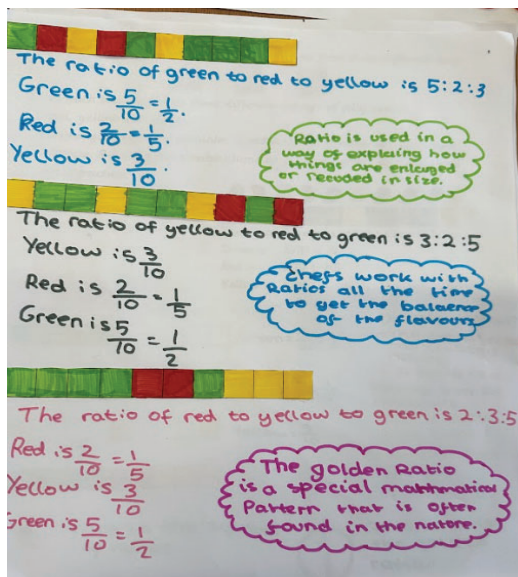 The ratio of green to red to yellow is 5:2:3
Green is 5/10 = 1/2.
Red is 2/10 = 1/5.
Yellow is 3/10.
Ratio is used in a
way of explaing how
things are enlarged
or recuded in size.
The ratio of yellow to red to green is 3:2:5
Yellow is 3/10
Red is 2/10 = 1/5
Green is 5/10 = 1/2
Chefs work with
Ratios all the time
to get the balaence
of the flavours
The ratio of red to yellow to green is 2:3:5
Red is 2/10 = 1/5
Yellow is 3/10
Green is 5/10 = 1/2
The golden Ratio
is a special
Pattern that is often
found in the nature.